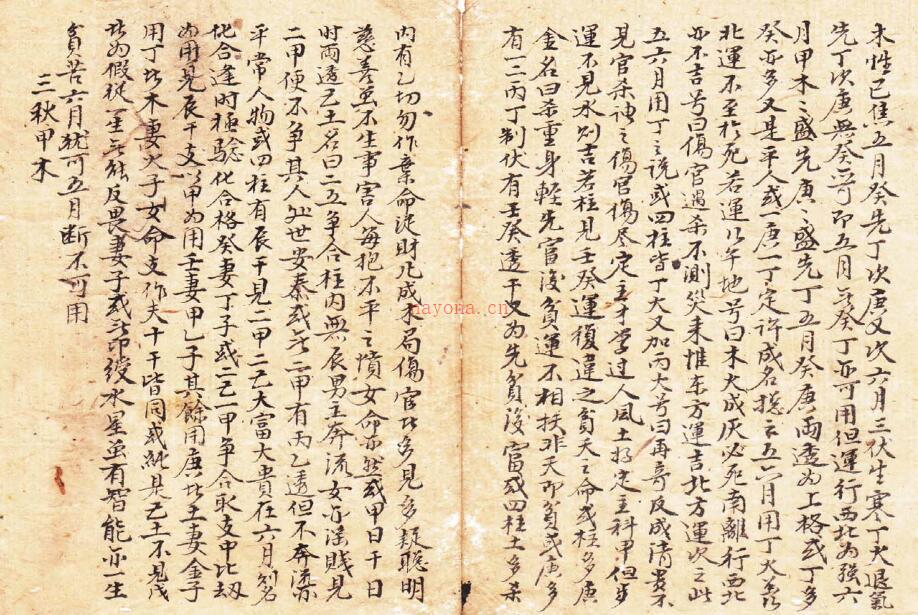 木性已焦五月癸先丁次庚又次六月三伏生寒丁火退氣
先丁次庚無癸亦可即五月乏癸丁亦可用但運行西北為強六
月甲木木盛先庚庚盛先丁五月癸庚兩透為上格或丁多
癸亦多又是平人或一庚一丁定許成名摠之五六月用丁火若
北運不至於死若運行午地号曰木火成灰必死南離行西北
亦不吉号曰傷官遇杀不測灾来惟东方運吉北方運次之此
五六月用丁之説或四柱皆丁火又加丙火号曰再奇反成清貴不
見官杀神之傷官傷尽定主才学过人風土好定主科甲但步
運不見水刈吉若柱見壬癸運復違之貧夭之命或柱多庚
金名曰杀重身軽先富後貧運不相扶非夭即貧或庚多
有一二丙丁制伏有壬癸透干又为先貧後富或四柱土多杀
内有乙切勿作棄命從財凡成木局傷官此多見多疑聡明
慈善虽不生事害人每抱不平之憤女命亦然或甲日干日
时両透己土名曰二土争合柱内無辰男主奔流女亦淫賤見
二甲便不争其人处世安泰或此一甲有丙乙透但不奔流
平常人物或四柱有辰干見二甲二己大富大貴在六月刈名
化合逢时極騐化合格癸妻丁子或二己一甲争合取支中比刼
为用見辰干支以甲为用壬妻甲乙子其餘用庚比土妻金子
用丁此木妻火子女命支作夫十干皆同或純是己土不見戊
此为假從一生无能反畏妻子或此印綬水星虽有智能亦一生
貧苦六月犹可五月断不可用
三秋甲木
nayona.cn